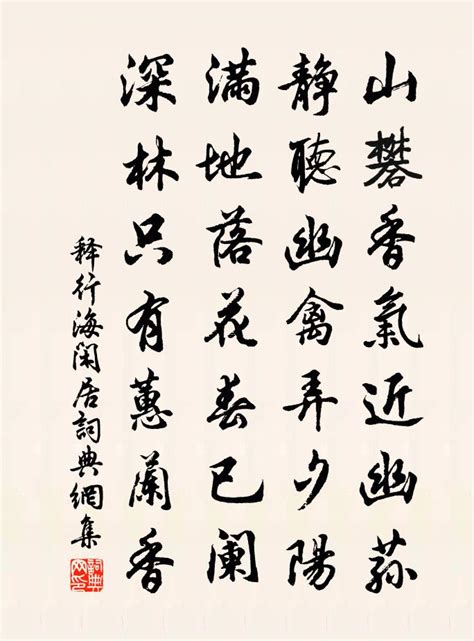 山礬香氣近幽蓀
靜聽幽禽弄夕陽
滿地落花春已闌
深林只有蕙蘭香
释行海闲居詞典網集
詞典網印